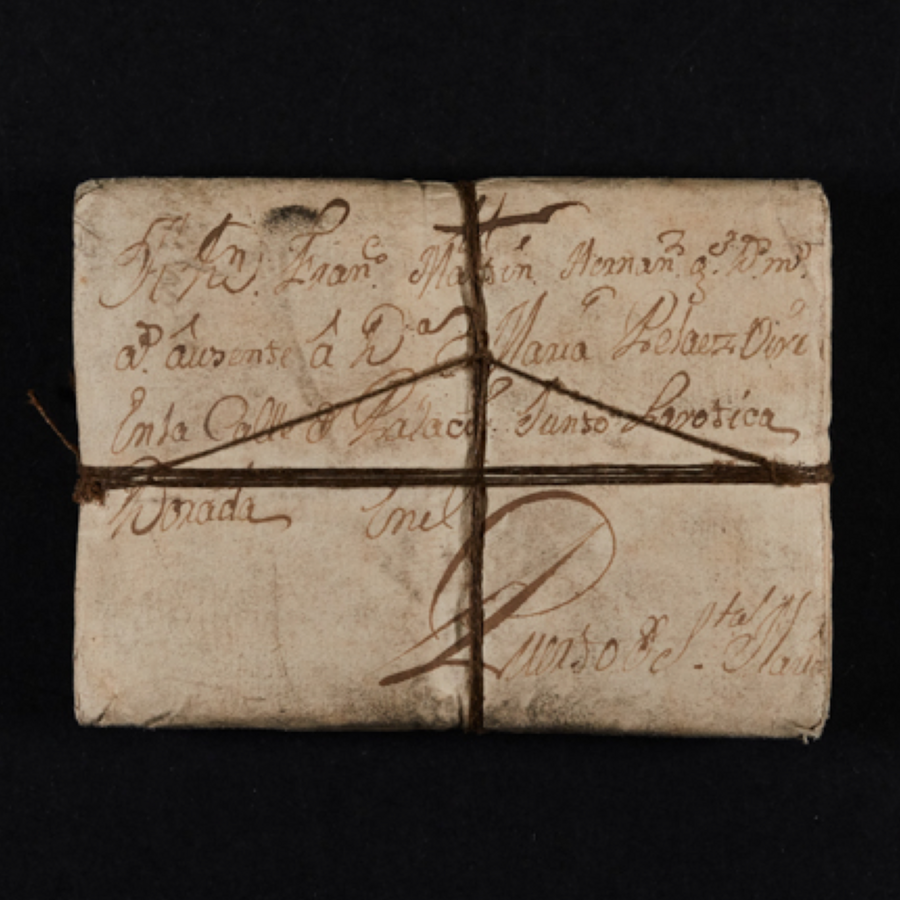 Fran.co Martin Hernan.z q.e D.s m.s
a.s ausente â D.a Maria Pelaez
En la Calle d Palacio Junto La votica
Dorada En el
Puerto d S.ta Maria